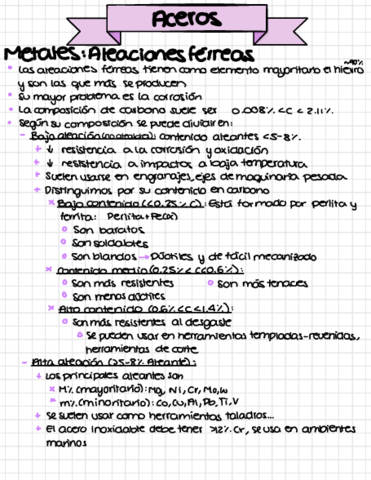 Aceros
Metales: Aleaciones férreas
• Las aleaciones férreas tienen como elemento mayoritario el hierro ~90%
y son las que más se producen
• Su mayor problema es la corrosión
• La composición de carbono suele ser 0.008% < C < 2.11%.
• Según su composición se puede dividir en:
- Baja aleación (no aleada): contenido aleantes <5-8%.
+ ↓ resistencia a la corrosión y oxidación
+ ↓ resistencia a impactos a baja temperatura
+ Suelen usarse en engranajes, ejes de maquinaria pesada
+ Distinguimos por su contenido en carbono
× Bajo contenido (<0.25% C): Está formado por perlita y
ferrita: Perlita + Fe(α)
o Son baratos
o Son soldables
o Son blandos → Dúctiles y de fácil mecanizado
× Contenido medio (0.25% < C < 0.6%):
o Son más resistentes o Son más tenaces
o Son menos dúctiles
× Alto contenido (0.6% < C < 1.4%):
o Son más resistentes al desgaste
o Se pueden usar en herramientas templadas-revenidas,
herramientas de corte
- Alta aleación (>5-8% Aleante):
+ Los principales aleantes son
× M% (mayoritario): Mg, Ni, Cr, Mo, W
× m% (minoritario): Co, Cu, Al, Pb, Ti, V
+ Se suelen usar como herramientas taladros...
+ El acero inoxidable debe tener >12% Cr, se usa en ambientes
marinos